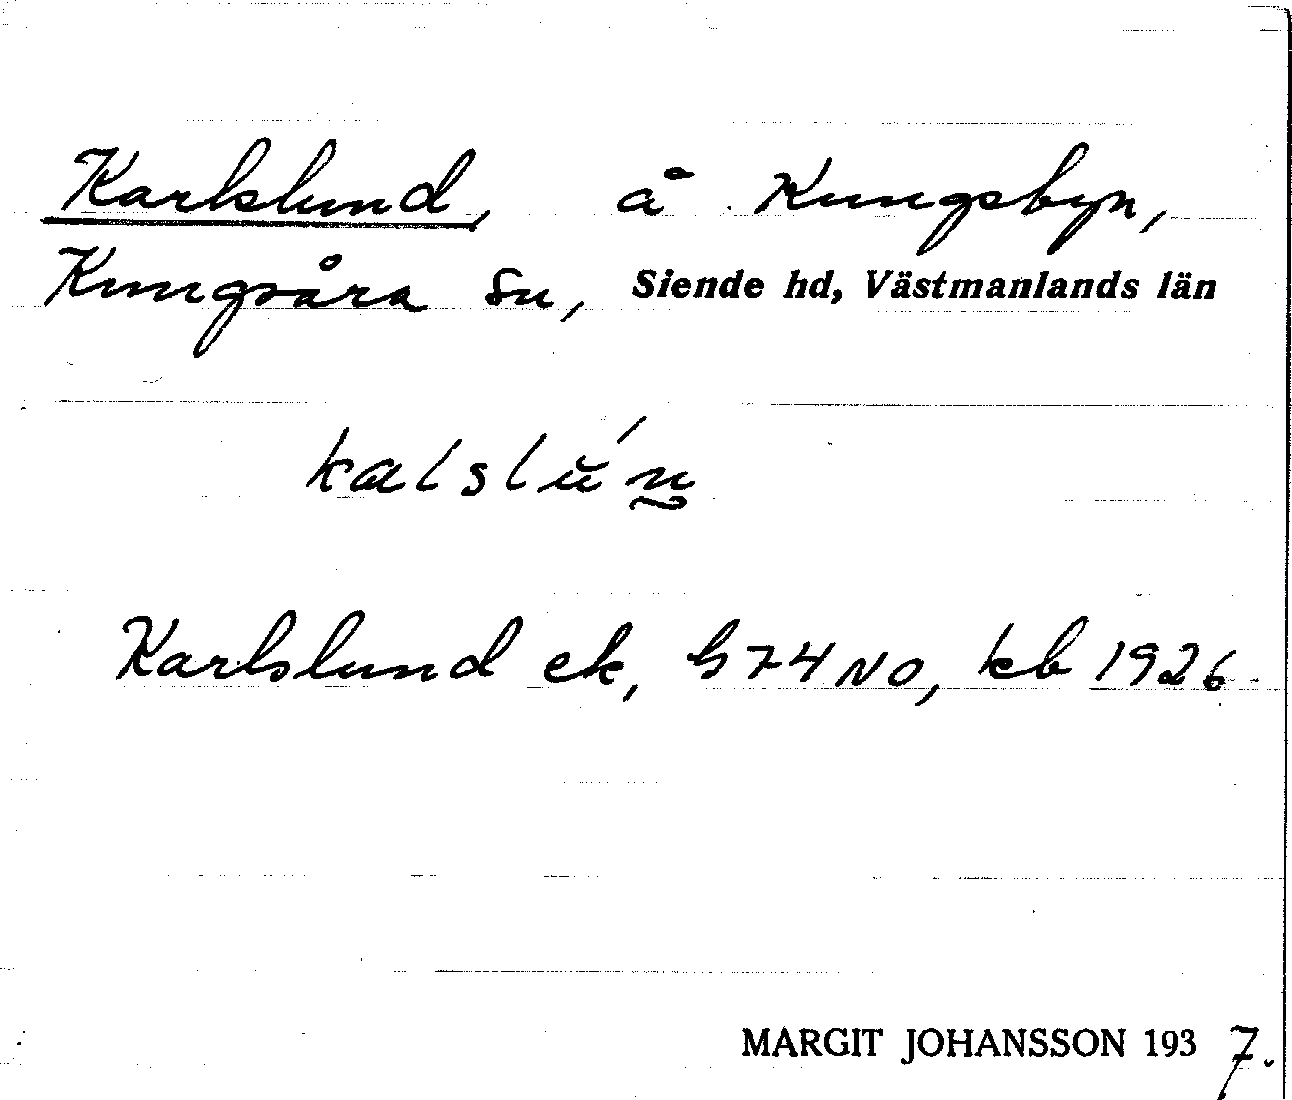 Karlslund, å Kungsbyn,
Kungsåra sn, Siende hd, Västmanlands län
kalslŭ´n̰
Karlslund ek, h 74 NO, kb 1926
MARGIT JOHANSSON 1937.